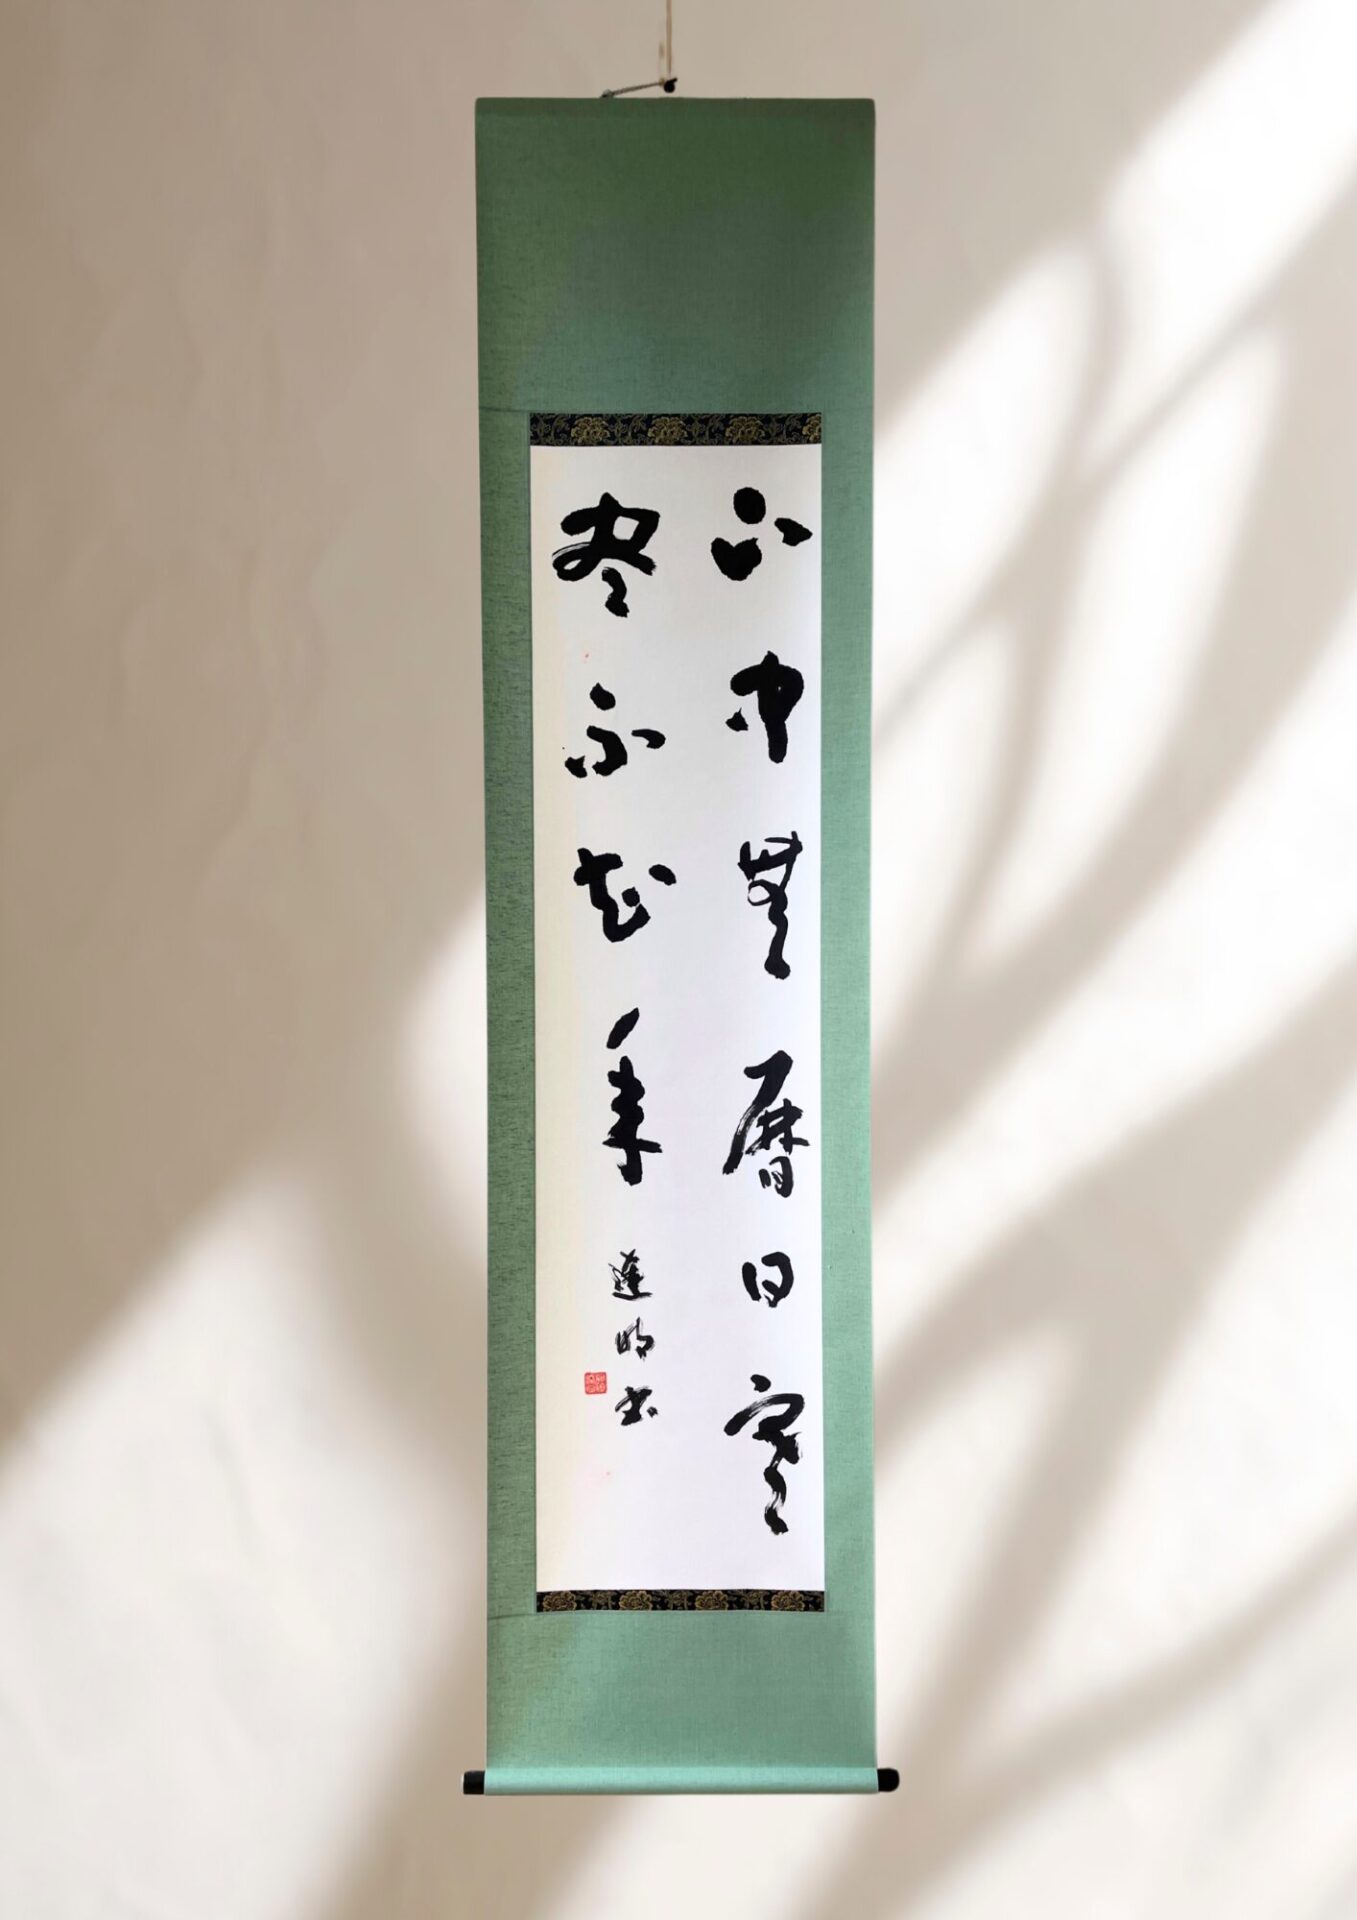 山中無暦日寒
尽不知年 達明書